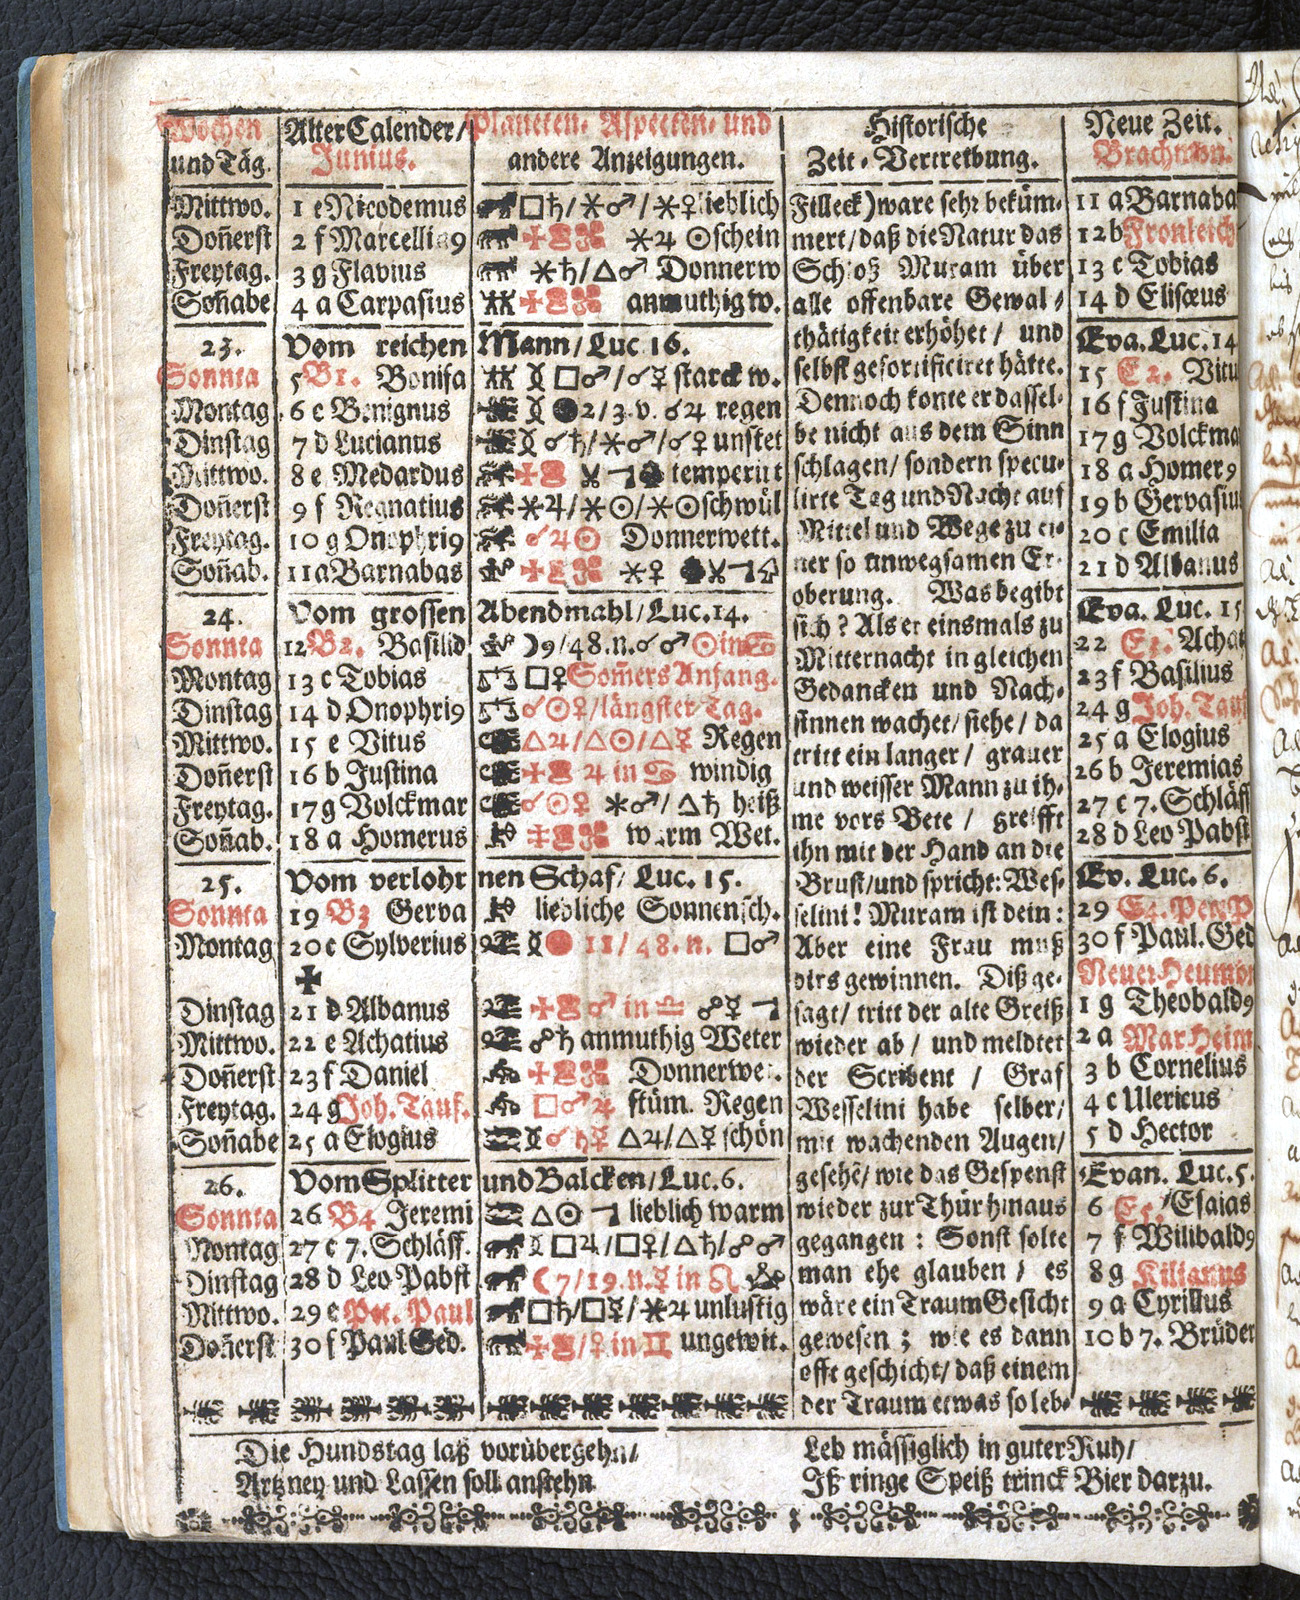 Wochen und Täg.
Alter Calender/ Junius.
Planeten- Aspecten- und andere Anzeigungen.
Historische Zeit-Vertreibung.
Neue Zeit. Brachmon.
Mittwo. 1 e Nicodemus □♄/⚹♂/⚹♀ lieblich
Doñerst 2 f Marcellia9 ⚹♃ ☉schein
Freytag. 3 g Flavius ⚹♄/△♂ Donnerw
Soñabe 4 a Carpasius anmuthig w.
23. Vom reichen Mann/Luc 16.
Sonnta 5 B1. Bonifa □♂/☌☿ starck w.
Montag 6 c Benignus 2/3.v. ☌♃ regen
Dinstag 7 d Lucianus ☌♄/⚹♂/☌♀ unstet
Mittwo. 8 e Medardus temperirt
Doñerst 9 f Reanatius ⚹♃/⚹☉/⚹☉schwül
Freytag. 10 g Onophri9 ☌♃☉ Donnerwett.
Soñab. 11 a Barnabas ⚹♀
24. Vom grossen Abendmahl/Luc.14.
Sonnta 12 B2. Basilid ☽9/48.n.☌♂ ☉in♋
Montag 13 c Tobias □♀ Som̃ers Anfang.
Dinstag 14 d Onophri9 ☌☉♀/längster Tag.
Mittwo. 15 e Vitus △♃/△☉/△☿ Regen
Doñerst 16 b Justina ♃ in ♋ windig
Freytag. 17 g Volckmar ☌☉♀ ⚹♂/△♄ heiß
Soñab. 18 a Homerus warm Wet.
25. Vom verlohrnen Schaf/ Luc. 15.
Sonnta 19 B3 Gerva liebliche Sonnensch.
Montag 20 c Sylverius 11/48.n. □♂
✠
Dinstag 21 d Albanus ♂ in ♎ ☍☿
Mittwo. 22 e Achatius ☍♄ anmuthig Weter
Doñerst 23 f Daniel Donnerwet.
Freytag. 24 g Joh. Tauf. □♂♃ stüm. Regen
Soñabe 25 a Elogius ☌♄☿ △♃/△☿ schön
26. Vom Splitter und Balcken/Luc.6.
Sonnta 26 B4 Jeremi △☉ lieblich warm
Montag 27 c 7. Schläff. □♃/□♀/△♄/☍♂
Dinstag 28 d Leo Pabst ☾7/19.n.☿ in ♌
Mittwo. 29 e Pet. Paul □♄/□☿/⚹♃ unlustig
Doñerst 30 f Paul Ged. ♀ in ♊ ungewit.
Filleck) ware sehr beküm-
mert/daß die Natur das
Schloß Muram über
alle offenbare Gewal-
thätigkeit erhöhet/ und
selbst gefortificiret hätte.
Dennoch konte er dassel-
be nicht aus dem Sinn
schlagen/ sondern specu-
lirte Tag und Nacht auf
Mittel und Wege zu ei-
ner so unwegsamen Er-
oberung. Was begibt
sich? Als er einsmals zu
Mitternacht in gleichen
Gedancken und Nach-
sinnen wachet/ siehe/ da
tritt ein langer/ grauer
und weisser Mann zu ih-
me vors Bete/ greifft
ihn mit der Hand an die
Brust/und spricht: Wes-
selini! Muram ist dein:
Aber eine Frau muß
dirs gewinnen. Diß ge-
sagt/ tritt der alte Greiß
wieder ab/ und meldtet
der Scribent / Graf
Wesselini habe selber/
mit wachenden Augen/
gesehẽ/ wie das Gespenst
wieder zur Thür hinaus
gegangen: Sonst solte
man ehe glauben/ es
wäre ein Traum Gesicht
gewesen; wie es dann
offt geschicht/ daß einem
der Traum etwas so leb-
11 a Barnaba
12 b Fronleich
13 c Tobias
14 d Elisæus
Eva. Luc. 14
15 E2. Vitu
16 f Justina
17 g Volckma
18 a Homer9
19 b Gervasiu
20 c Emilia
21 d Albanus
Eva. Luc. 15
22 E3. Achat
23 f Basilius
24 g Joh. Tauf
25 a Elogius
26 b Jeremias
27 c 7. Schläff
28 d Leo Pabst
Ev. Luc. 6.
29 E4. Pet. P
30 f Paul. Ged
Neuer Heumon
1 g Theobald9
2 a Mar Heim
3 b Cornelius
4 c Ulericus
5 d Hector
Evan. Luc. 5.
6 E5. Esaias
7 f Wilibald9
8 g Kilianus
9 a Cyrillus
10 b 7. Brüder
Die Hundstag laß vorübergehn/
Artzney und Lassen soll anstehn
Leb mässiglich in guter Ruh/
Iß ringe Speiß trinck Bier darzu.